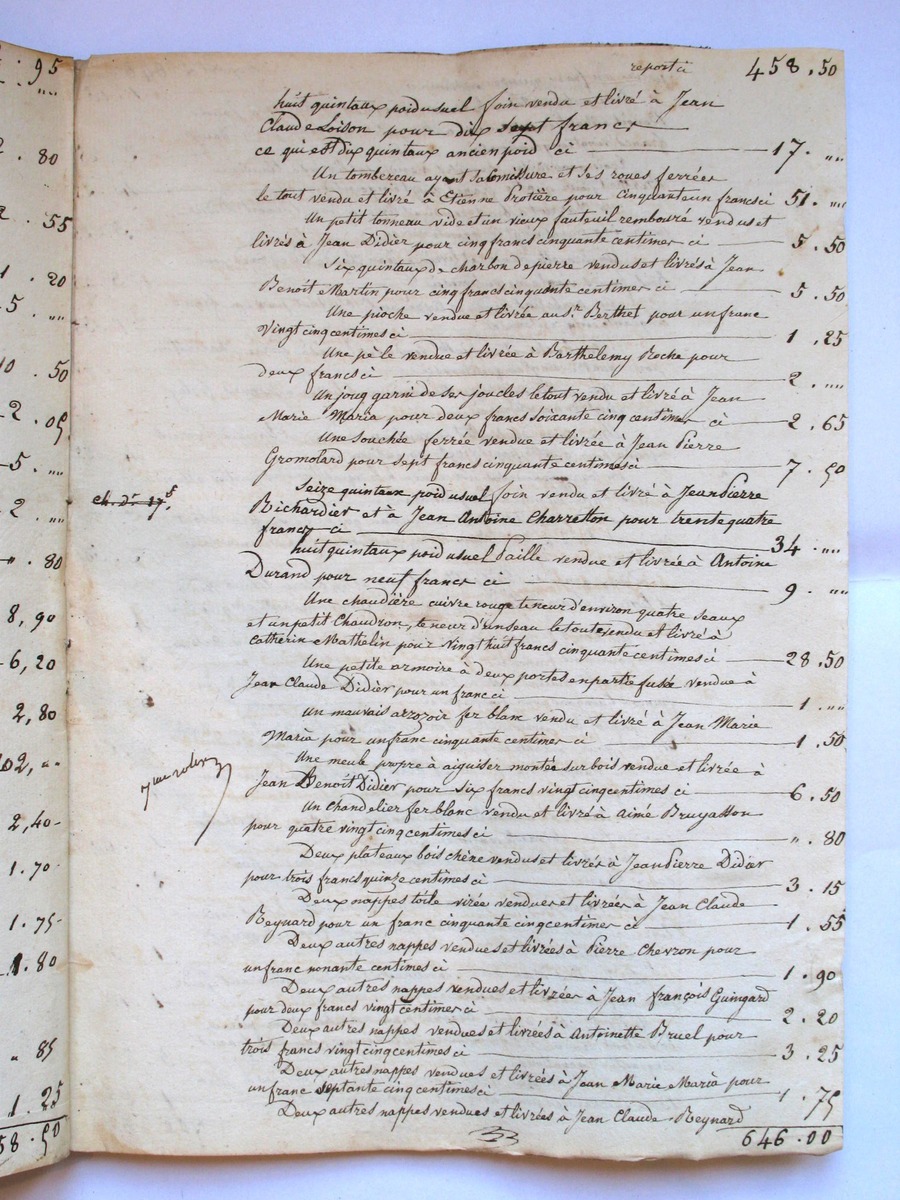 : 95
" "
2 . 80
2 . 55
1 . 20
5 . " "
10 . 50
2 . 05
5 . " "
2 . " "
" . 80
8, 90
6, 20
2, 80
02, " "
2, 40
1 . 70
1 . 75
1 . 80
" 85
1 . 25
58 . 50
report ci 458 . 50
huit quintaux poid usuel foin vendu et livré à Jean
Claude Loison pour dix sept francs
ce qui est dix quintaux ancien poid ci 17 . " "
Un tombereau ayant sa et ses roues ferrées
le tout vendu et livré à Etienne Protière pour cinquante un francs ci 51 . " "
Un petit tonneau vide et un vieux fauteuil rembouré vendus et
livrés à Jean Didier pour cinq francs cinquante centimes ci 5 . 50
Six quintaux de charbon de pierre vendus et livrés à Jean
Benoit Martin pour cinq francs cinquante centimes ci 5 . 50
Une pioche vendue et livrée au Sr. Berthet pour un franc
Vingt cinq centimes ci 1 . 25
Une pèle vendue et livrée à Barthelemy Roche pour
deux francs ci 2 . " "
Un joug garni de ses joucles le tout vendu et livré à Jean
Marie Maria pour deux francs soixante cinq centimes ci 2 . 65
Une souchée ferrée vendue et livrée à Jean Pierre
Gromolard pour sept francs cinquante centimes ci 7 . 50
Seize quintaux poid usuel foin vendu et livré à Jean Pierre
Richardier et à Jean Antoine Charretton pour trente quatre
francs ci 34 . " "
huit quintaux poid usuel Paille vendue et livrée à Antoine
Durand pour neuf francs ci 9 . " "
Une chaudière cuivre rouge teneur d'environ quatre seaux
et un petit Chaudron, teneur d'un seau le tout vendu et livré à
Catherin Mathelin pour vingt huit francs cinquante centimes ci 28 . 50
Une petite armoire à deux portes en partie vendue à
Jean Claude Didier pour un franc ci 1 . " "
Un mauvais arrozoir fer blanc vendu et livré à Jean Marie
Maria pour un franc cinquante centimes ci 1 . 50
Une meule propre à aiguiser montée sur bois vendue et livrée à
Jean Benoit Didier pour six francs vingt cinq centimes ci 6 . 50
Un chandelier fer blanc vendu et livré à aimé Bruyasson
pour quatre vingt cinq centimes ci " . 80
Deux plateaux bois chêne vendus et livrés à Jean Pierre Didier
pour trois francs quinze centimes ci 3 . 15
Deux nappes toile vendues et livrées à Jean Claude
Reynard pour un franc cinquante cinq centimes ci 1 . 55
Deux autres nappes vendues et livrées à Pierre Chevron pour
un franc nonante centimes ci 1 . 90
Deux autres nappes vendues et livrées à Jean françois Guingard
pour deux francs vingt centimes ci 2 . 20
Deux autres nappes vendues et livrées à Antoinette Bruel pour
trois francs vingt cinq centimes ci 3 . 25
Deux autres nappes vendues et livrées à Jean Marie Maria pour
un franc septante cinq centimes ci 1 . 75
Deux autres nappes vendues et livrées à Jean Claude Reynard
646 . 00